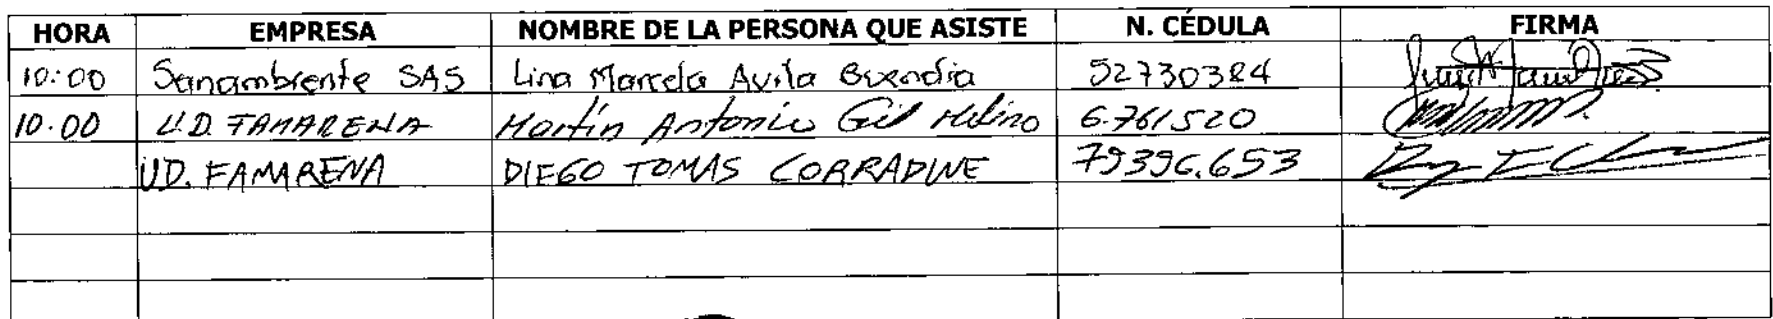 HORA EMPRESA NOMBRE DE LA PERSONA QUE ASISTE N. CÉDULA FIRMA
10:00 Sanambiente SAS Lina Marcela Avila Buendia 52730384
10.00 U.D. FAMARENA Martín Antonio Gil Molino 6.761520
UD. FAMARENA DIEGO TOMAS CORRADINE 79396.653